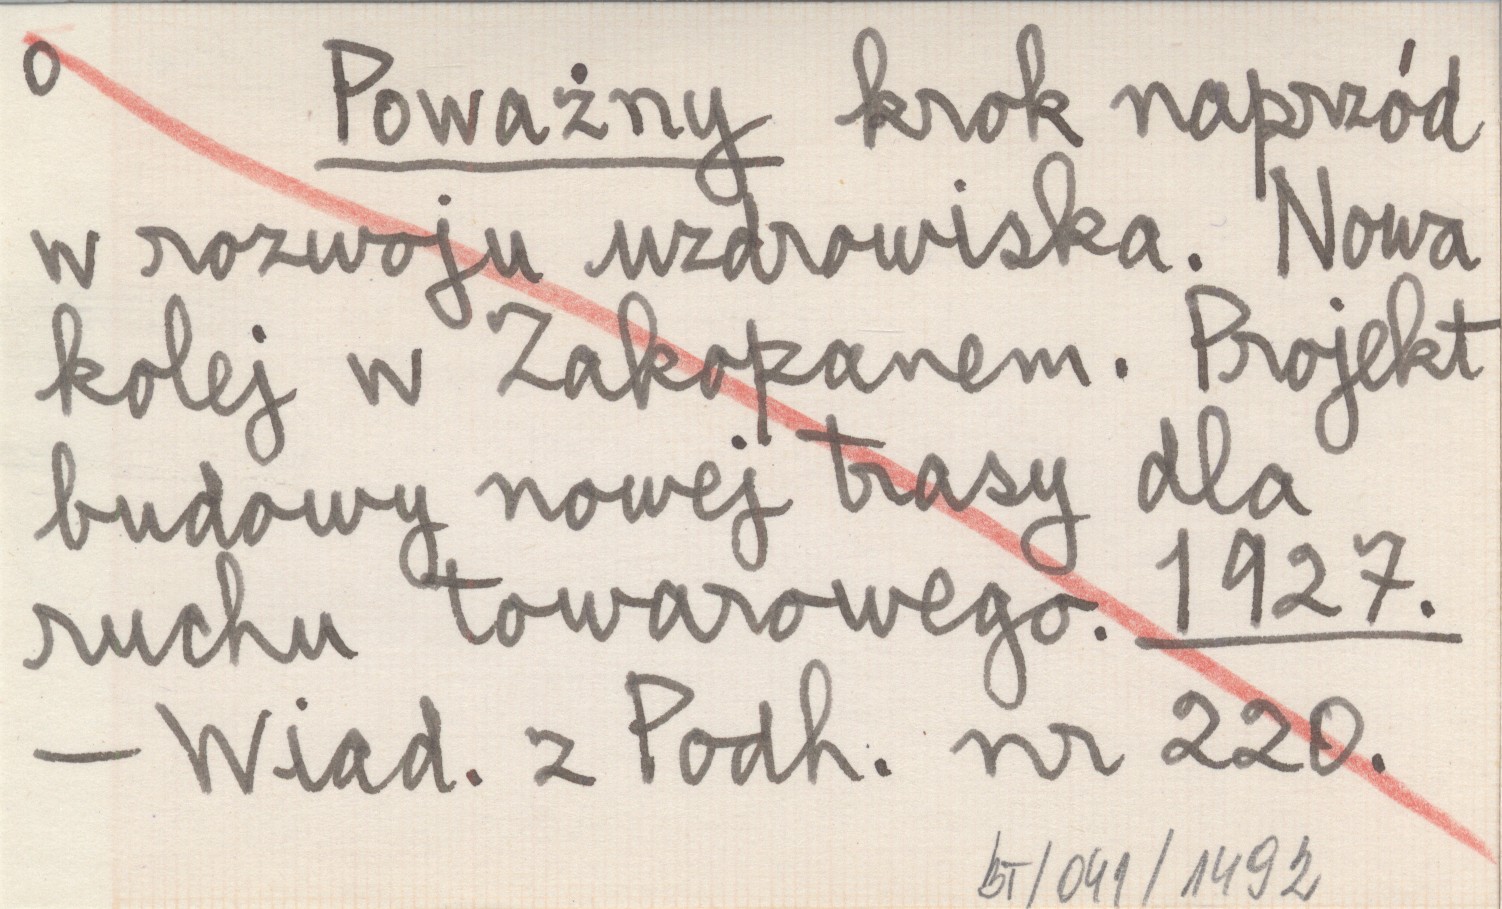 o Poważny krok naprzód
w rozwoju uzdrowiska. Nowa
kolej w Zakopanem. Projekt
budowy nowej trasy dla
ruchu towarowego. 1927.
— Wiad. z Podh. nr 220.
BT/041/1492